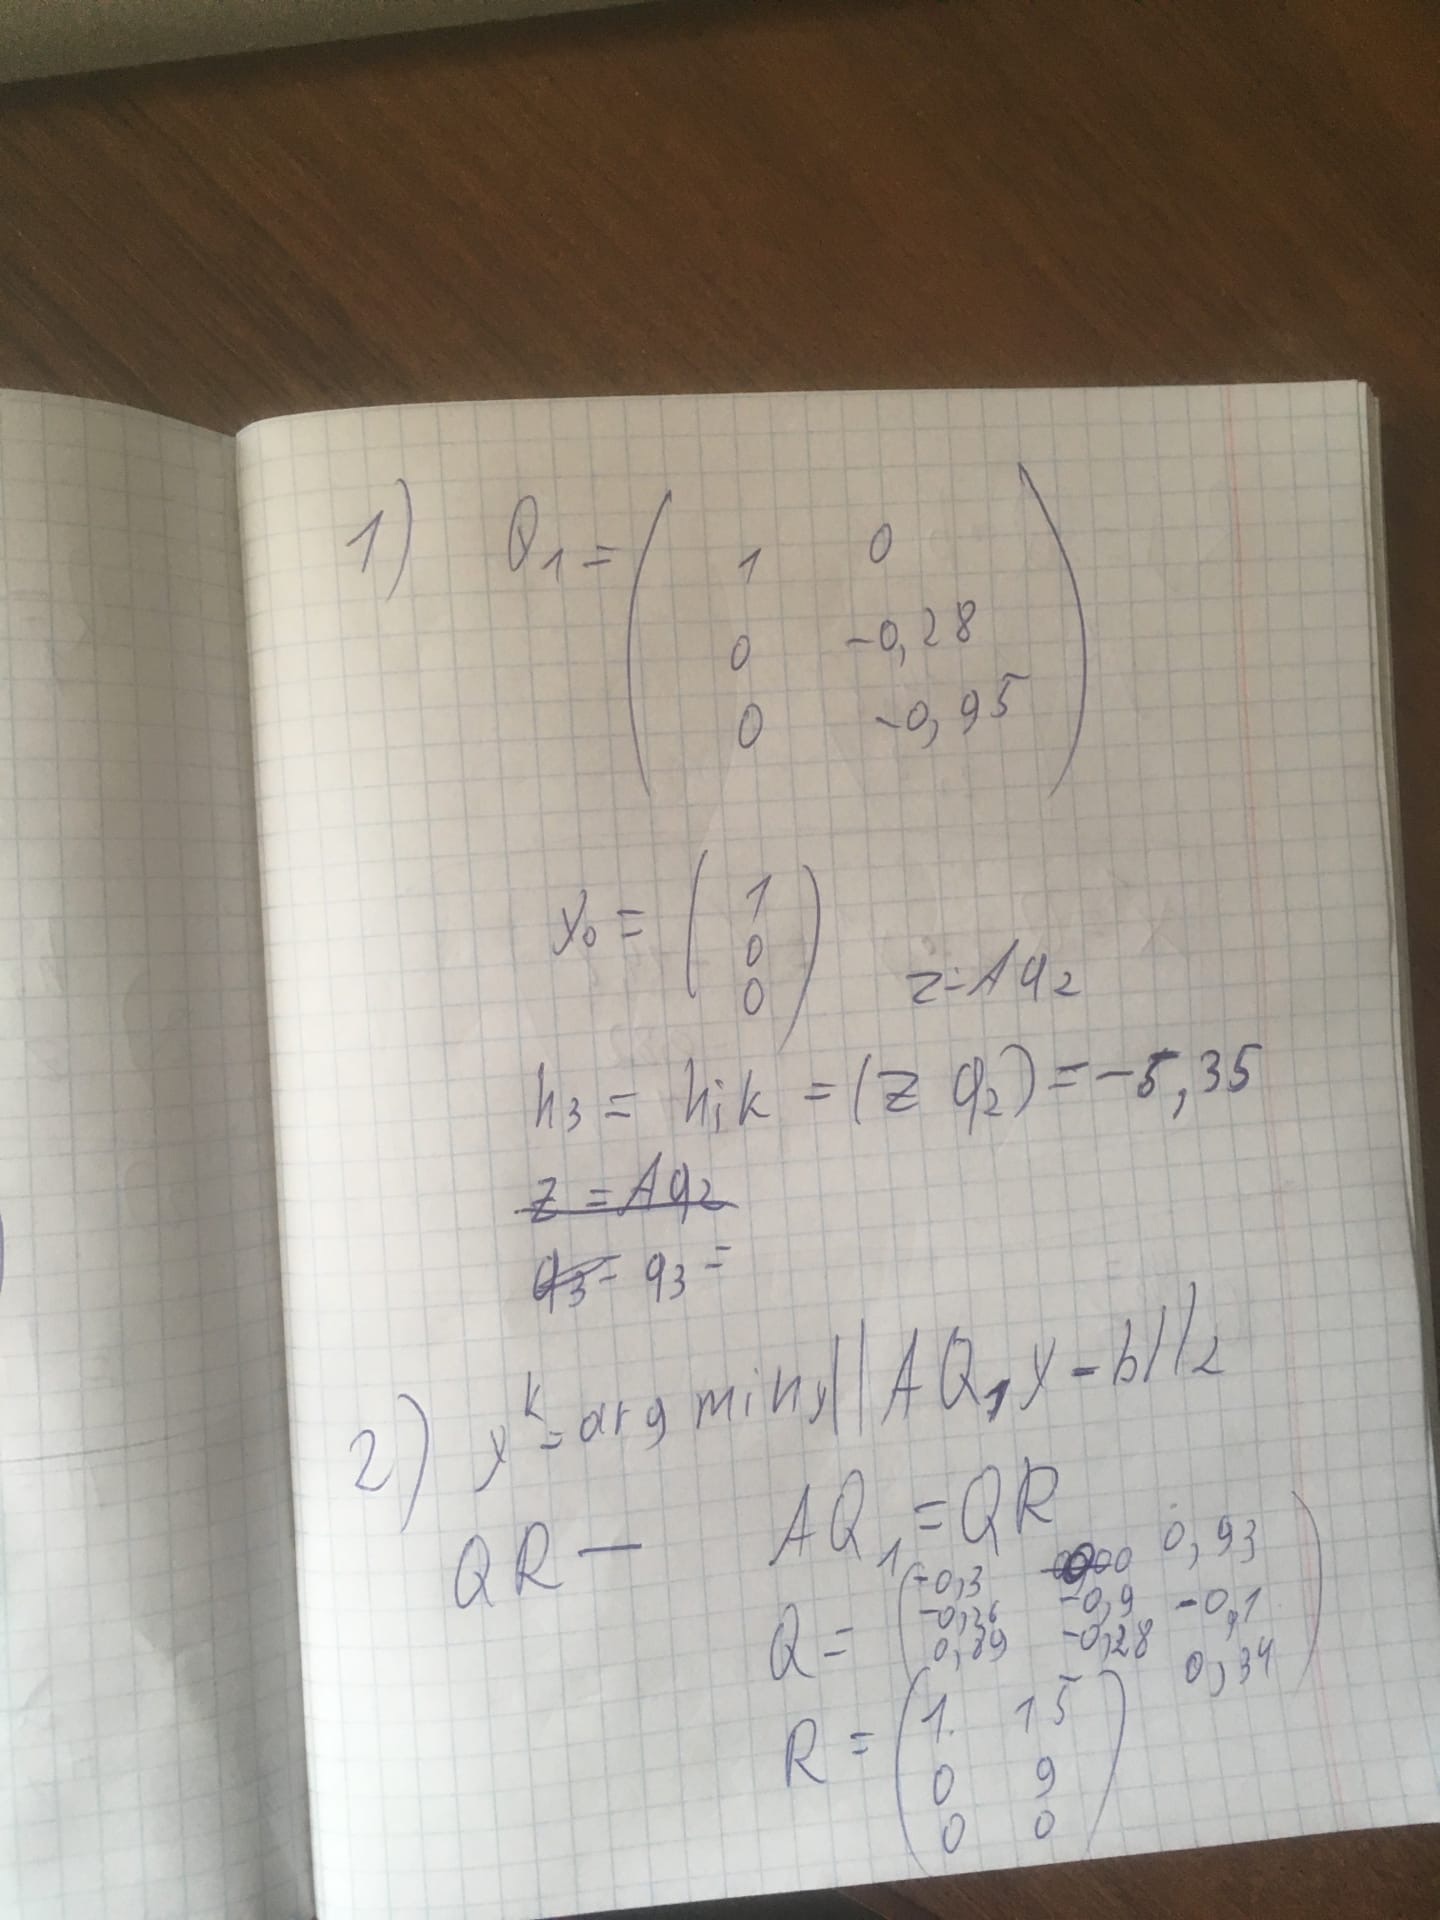 1) Q₁ = ( 1 0
0 -0,28
0 -0,95 )
y₀ = ( 1
0
0 ) z=Aq₂
h₃ = hᵢk = (z q₂) = -5,35
z = Aq₂
q₃ = q₃ =
2) y^k = arg min_y || AQ₁y - b ||₂
QR — AQ₁ = QR
Q = ( -0,3 0,93
-0,26 -0,9 -0,1
0,89 -0,28 0,34 )
R = ( 1. 15
0 9
0 0 )